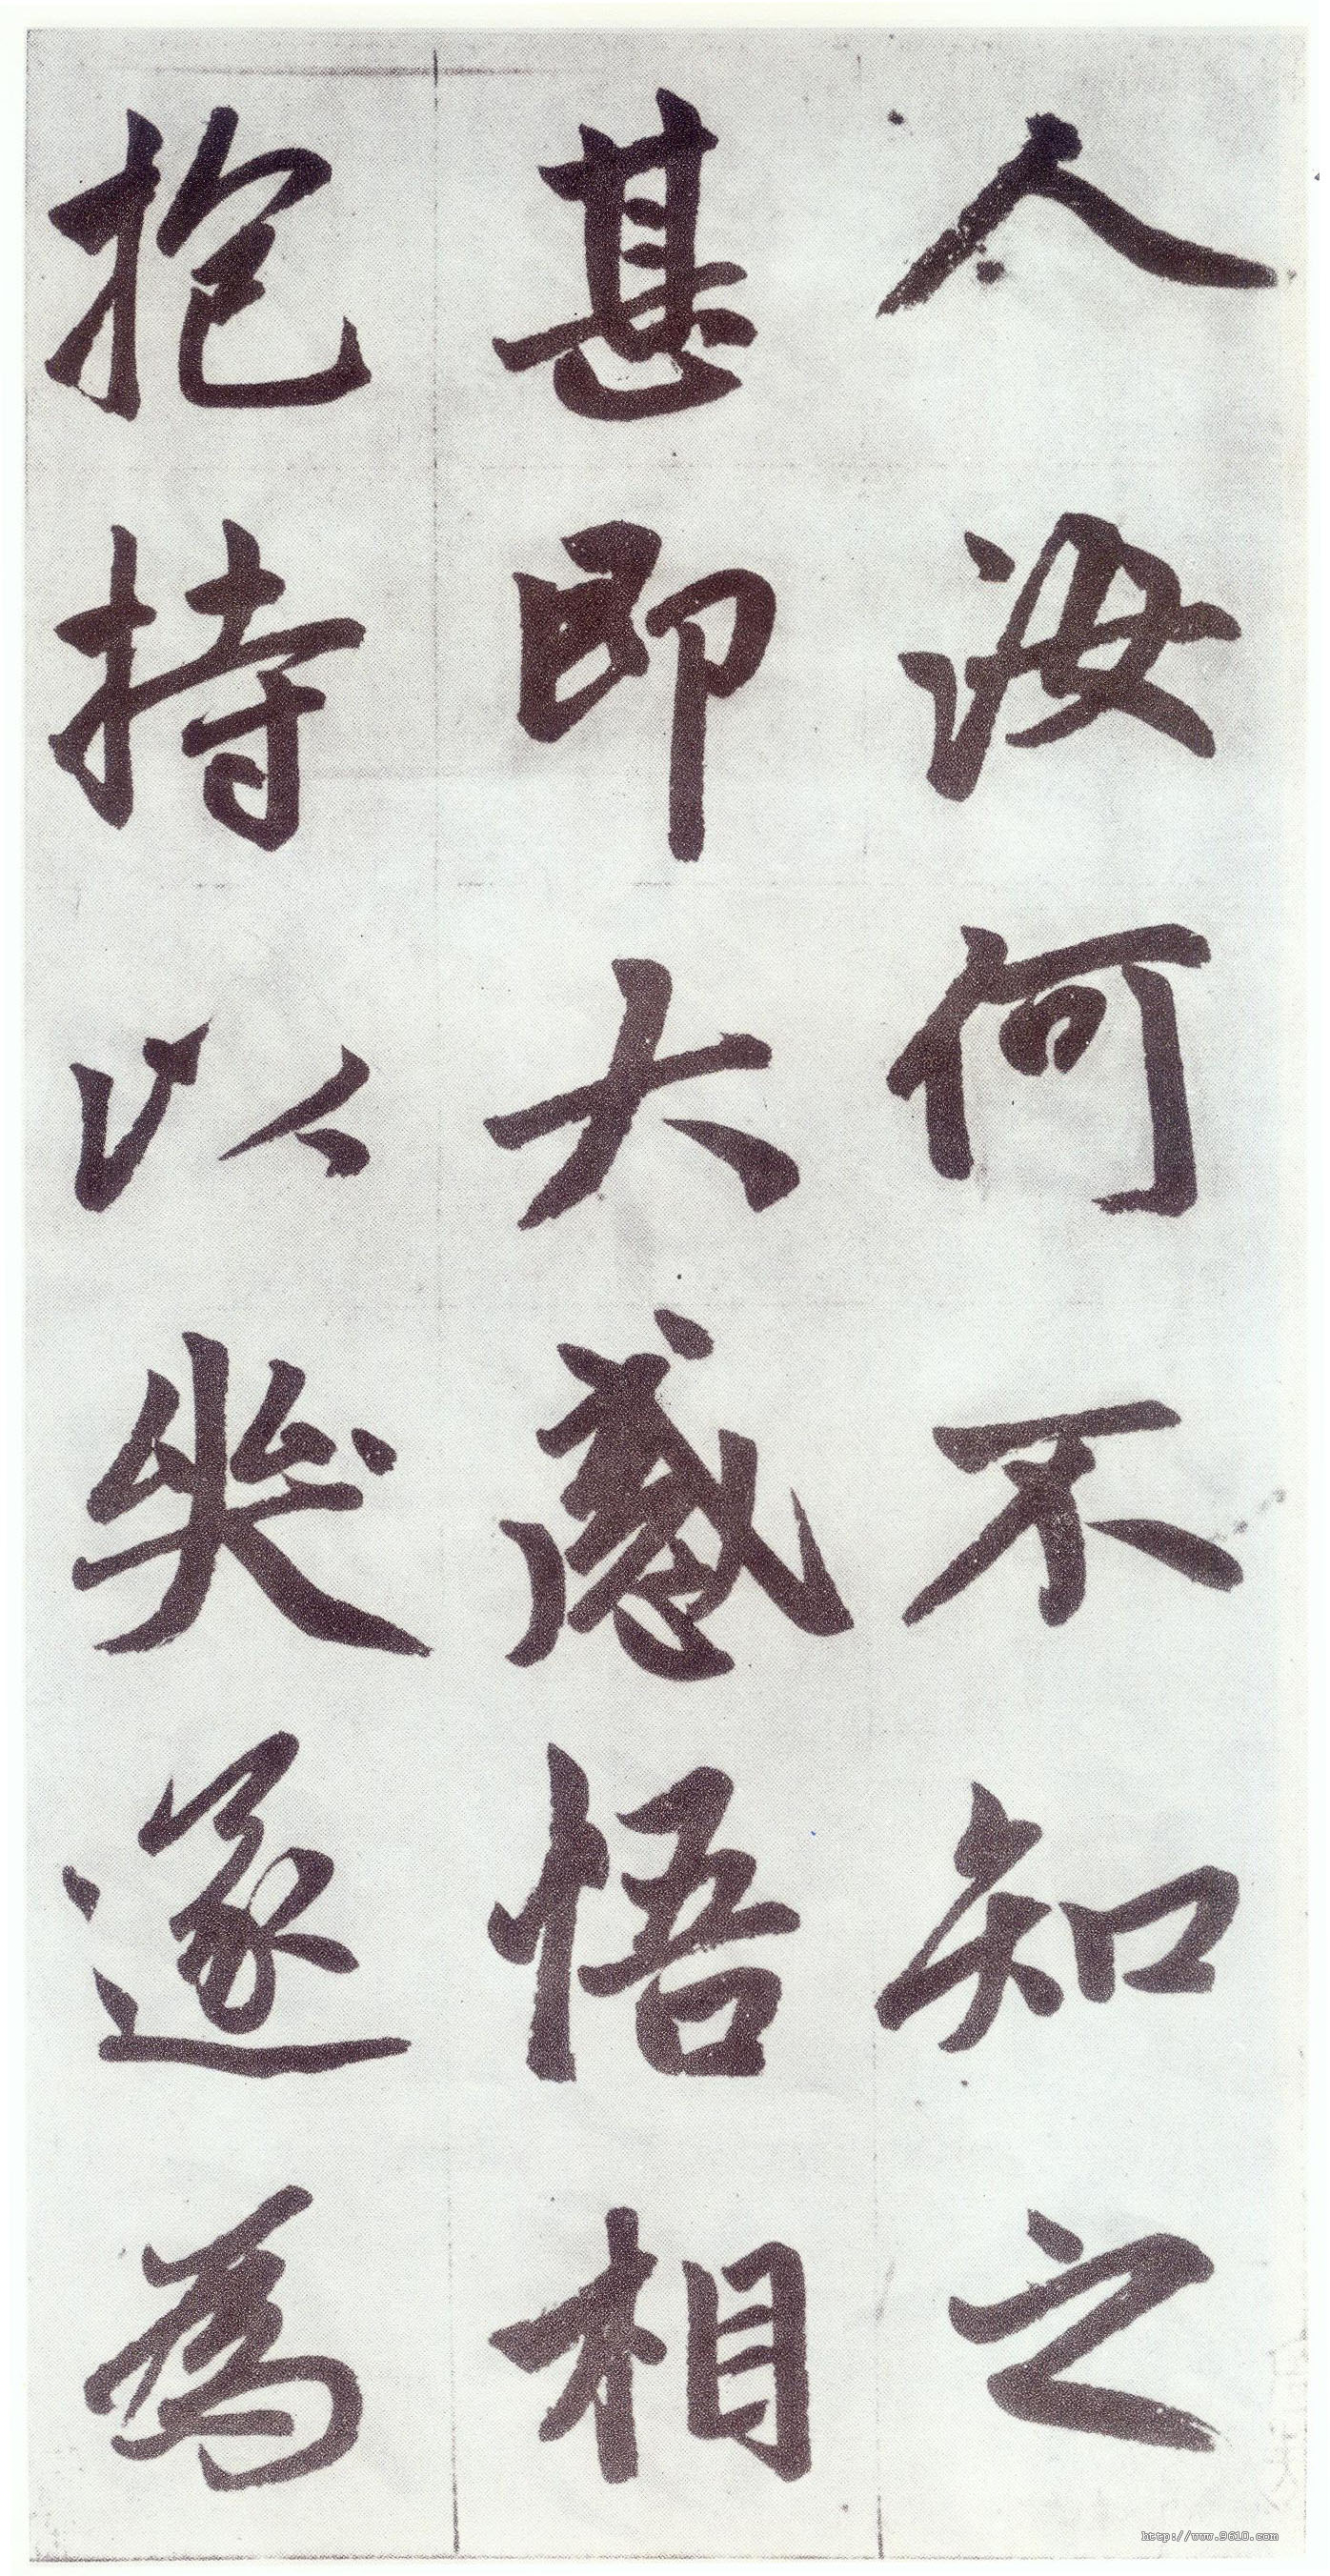 人汝何不知之
甚即大感悟相
抱持以哭遂為
http://www.9610.com